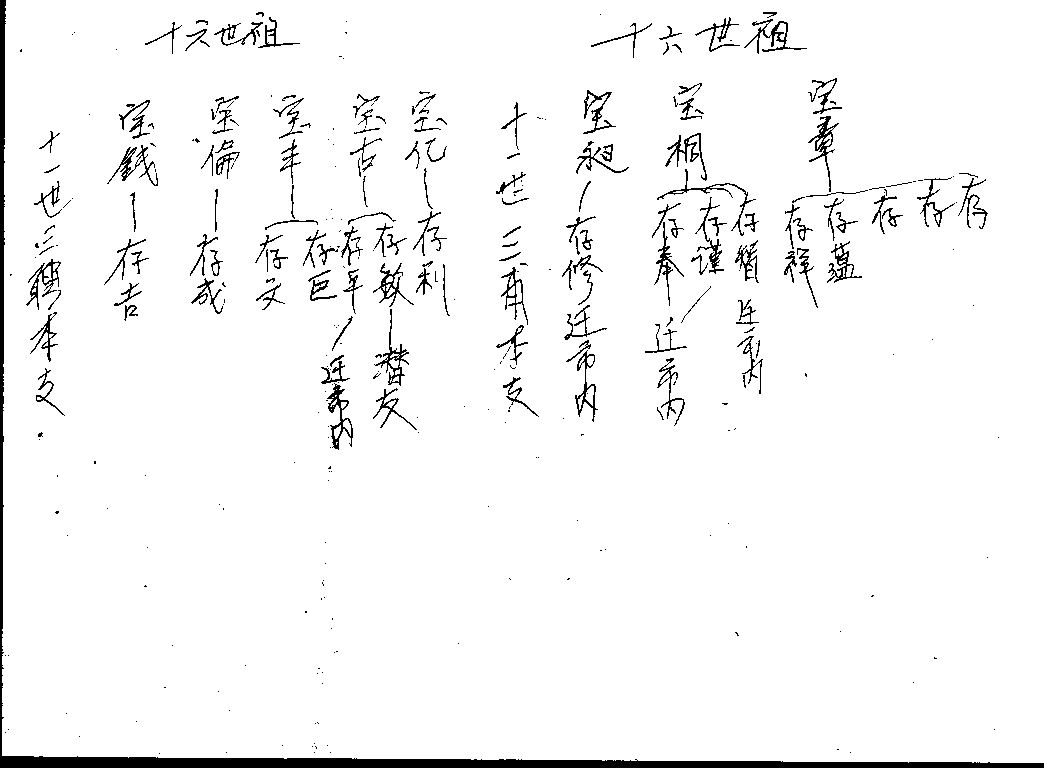 十六世祖
宝章
存
存
存
存蕴
存祥
宝桐
存
迁市内
存谨
存奉
迁市内
宝昶
存修迁市内
十一世三甫本支
十六世祖
宝亿
存利
宝古
存敏
潜友
存平
迁市内
宝丰
存巨
存文
宝倫
存成
宝銭
存吉
十一世三聘本支